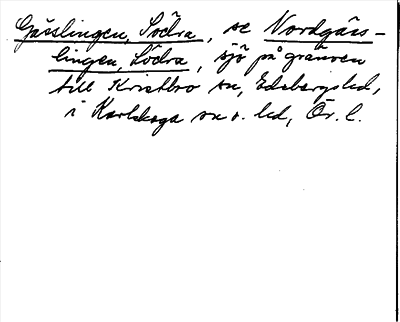 Gässlingen, Södra, se Nordgäss-
lingen, Södra, sjö på gränsen
till sn, Edsbergs hd,
i Karlskoga sn o. hd, Ör. l.